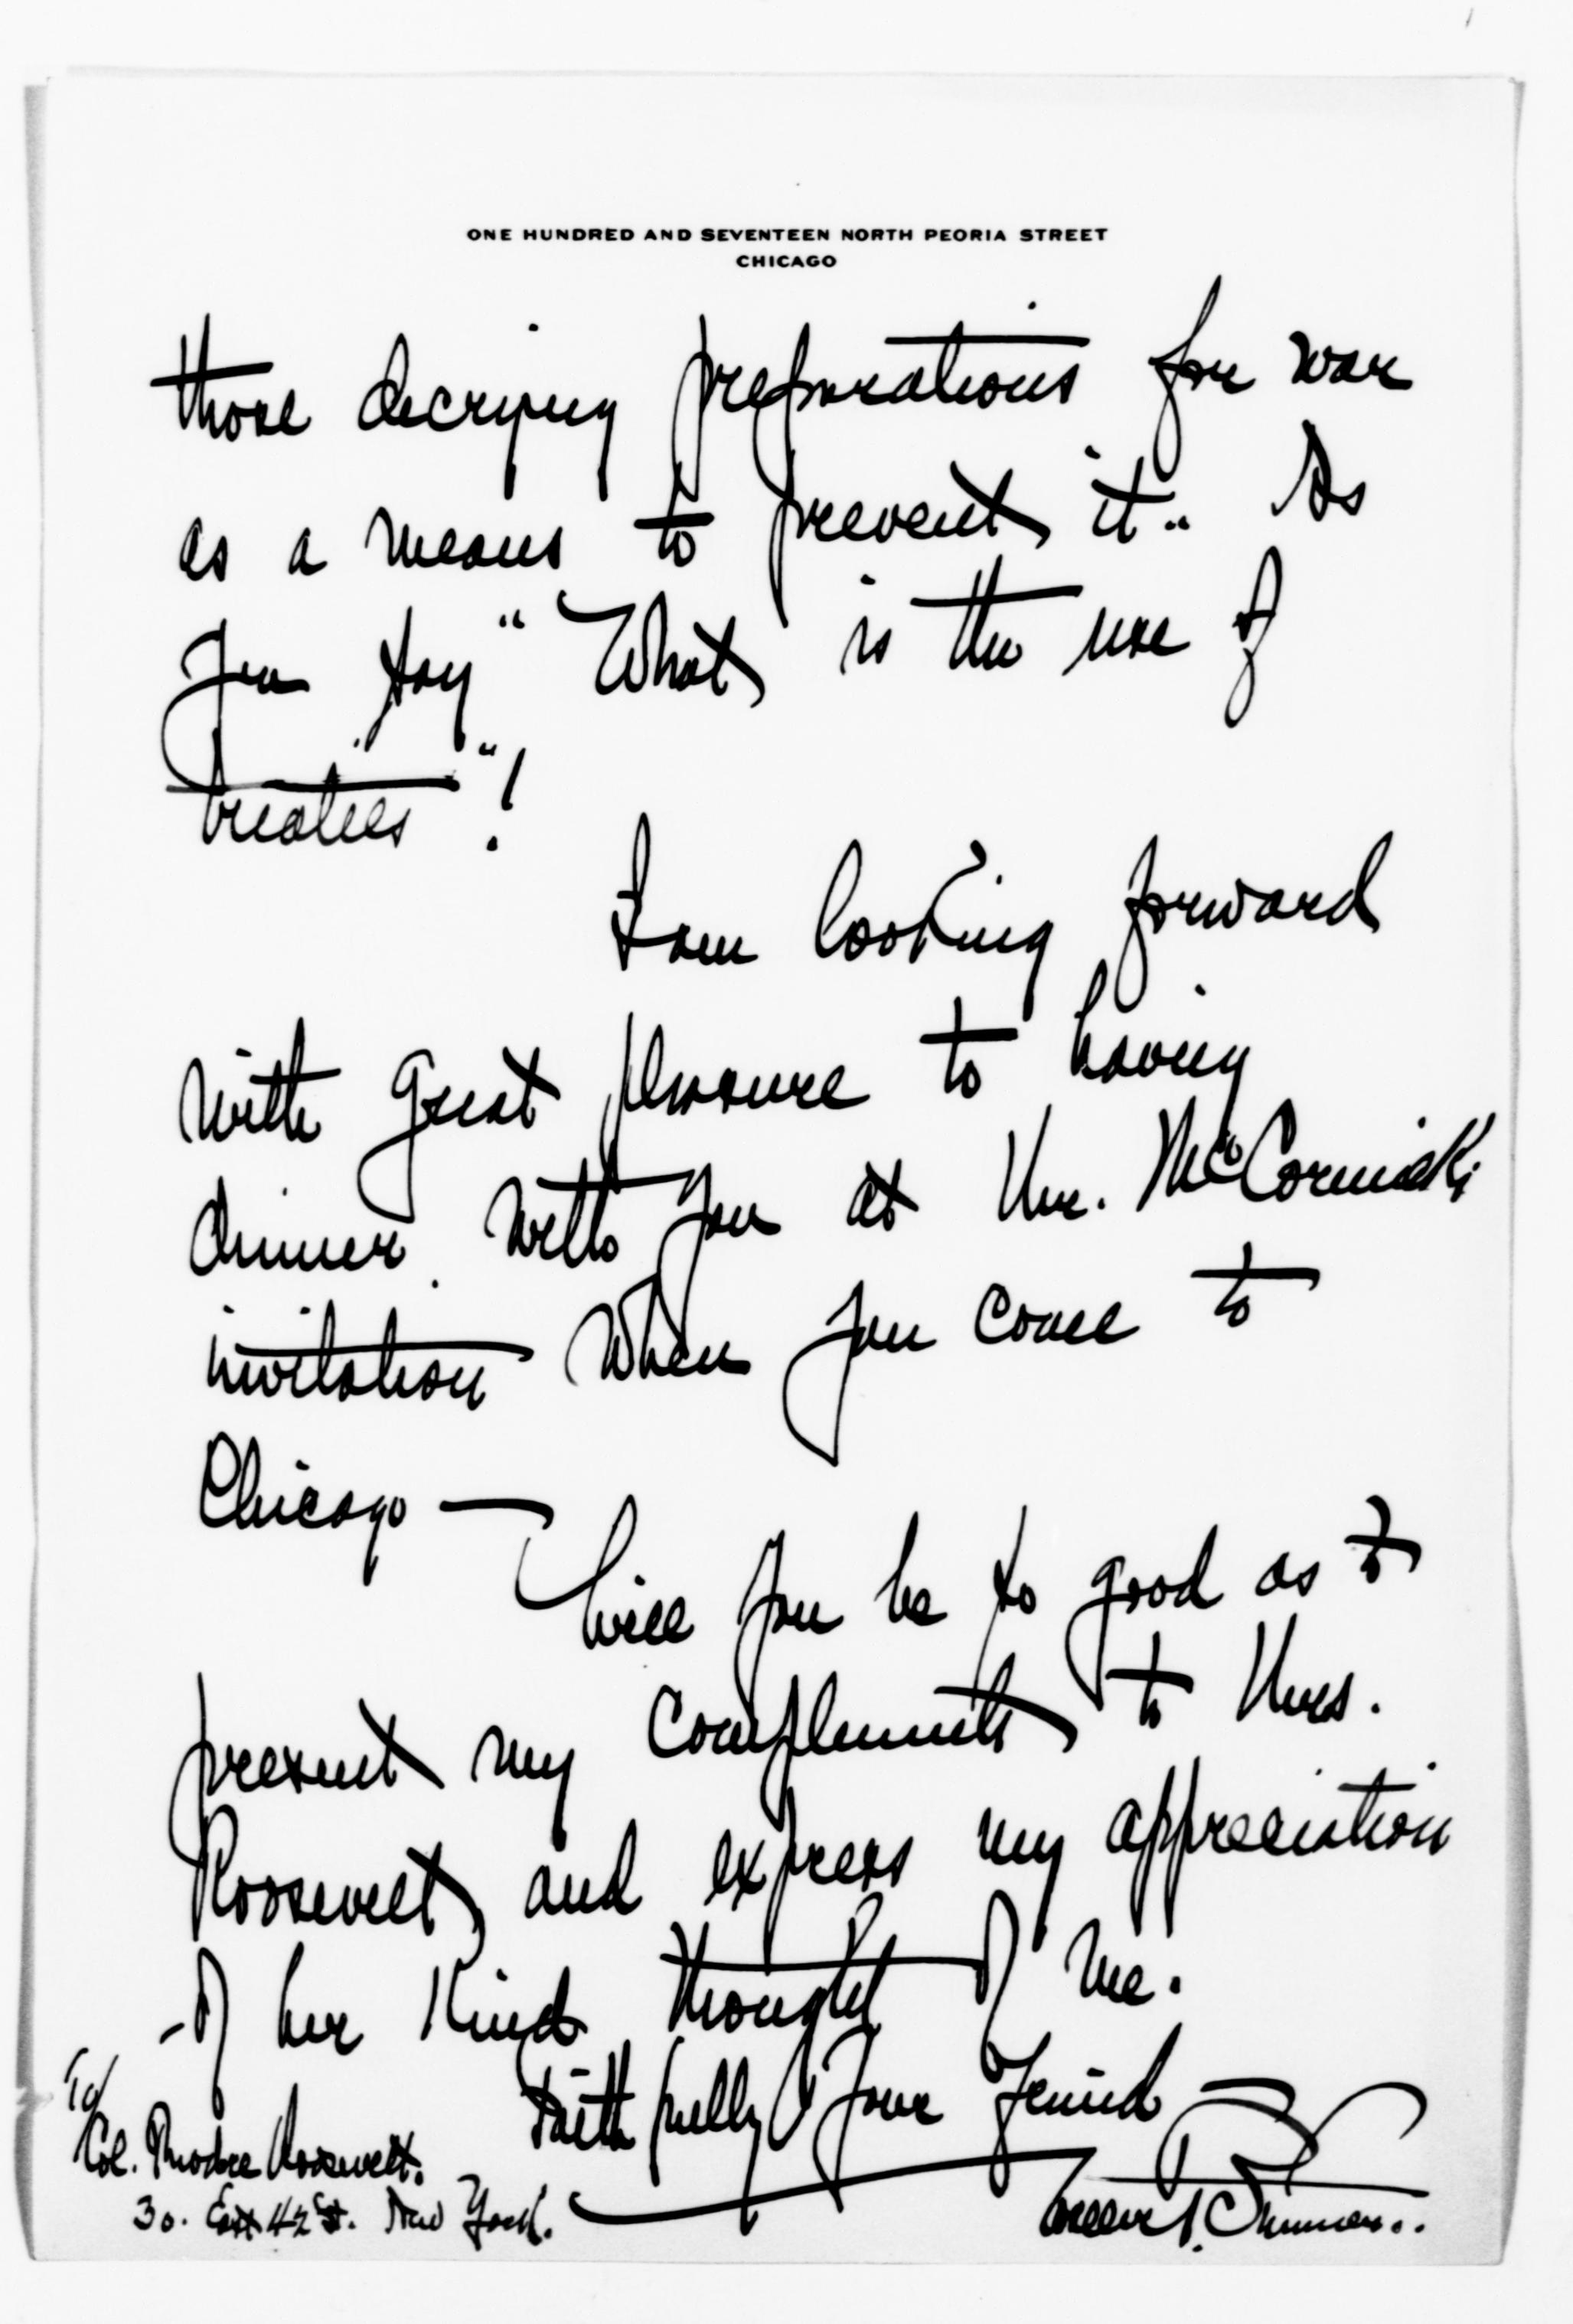 ONE HUNDRED AND SEVENTEEN NORTH PEORIA STREET
CHICAGO
those decrying preparations for war
as a means to prevent it.. As
you say "What is the use of
treaties"!
I am looking forward
with great pleasure to having
dinner with you at Mr. McCormick's
invitation when you come to
Chicago —
Will you be so good as to
present my compliments to Mrs.
Roosevelt, and express my appreciation
of her kind thought of me.
Faithfully Your Friend
To/
Col. Theodore Roosevelt.
30. East 42 St. New York.